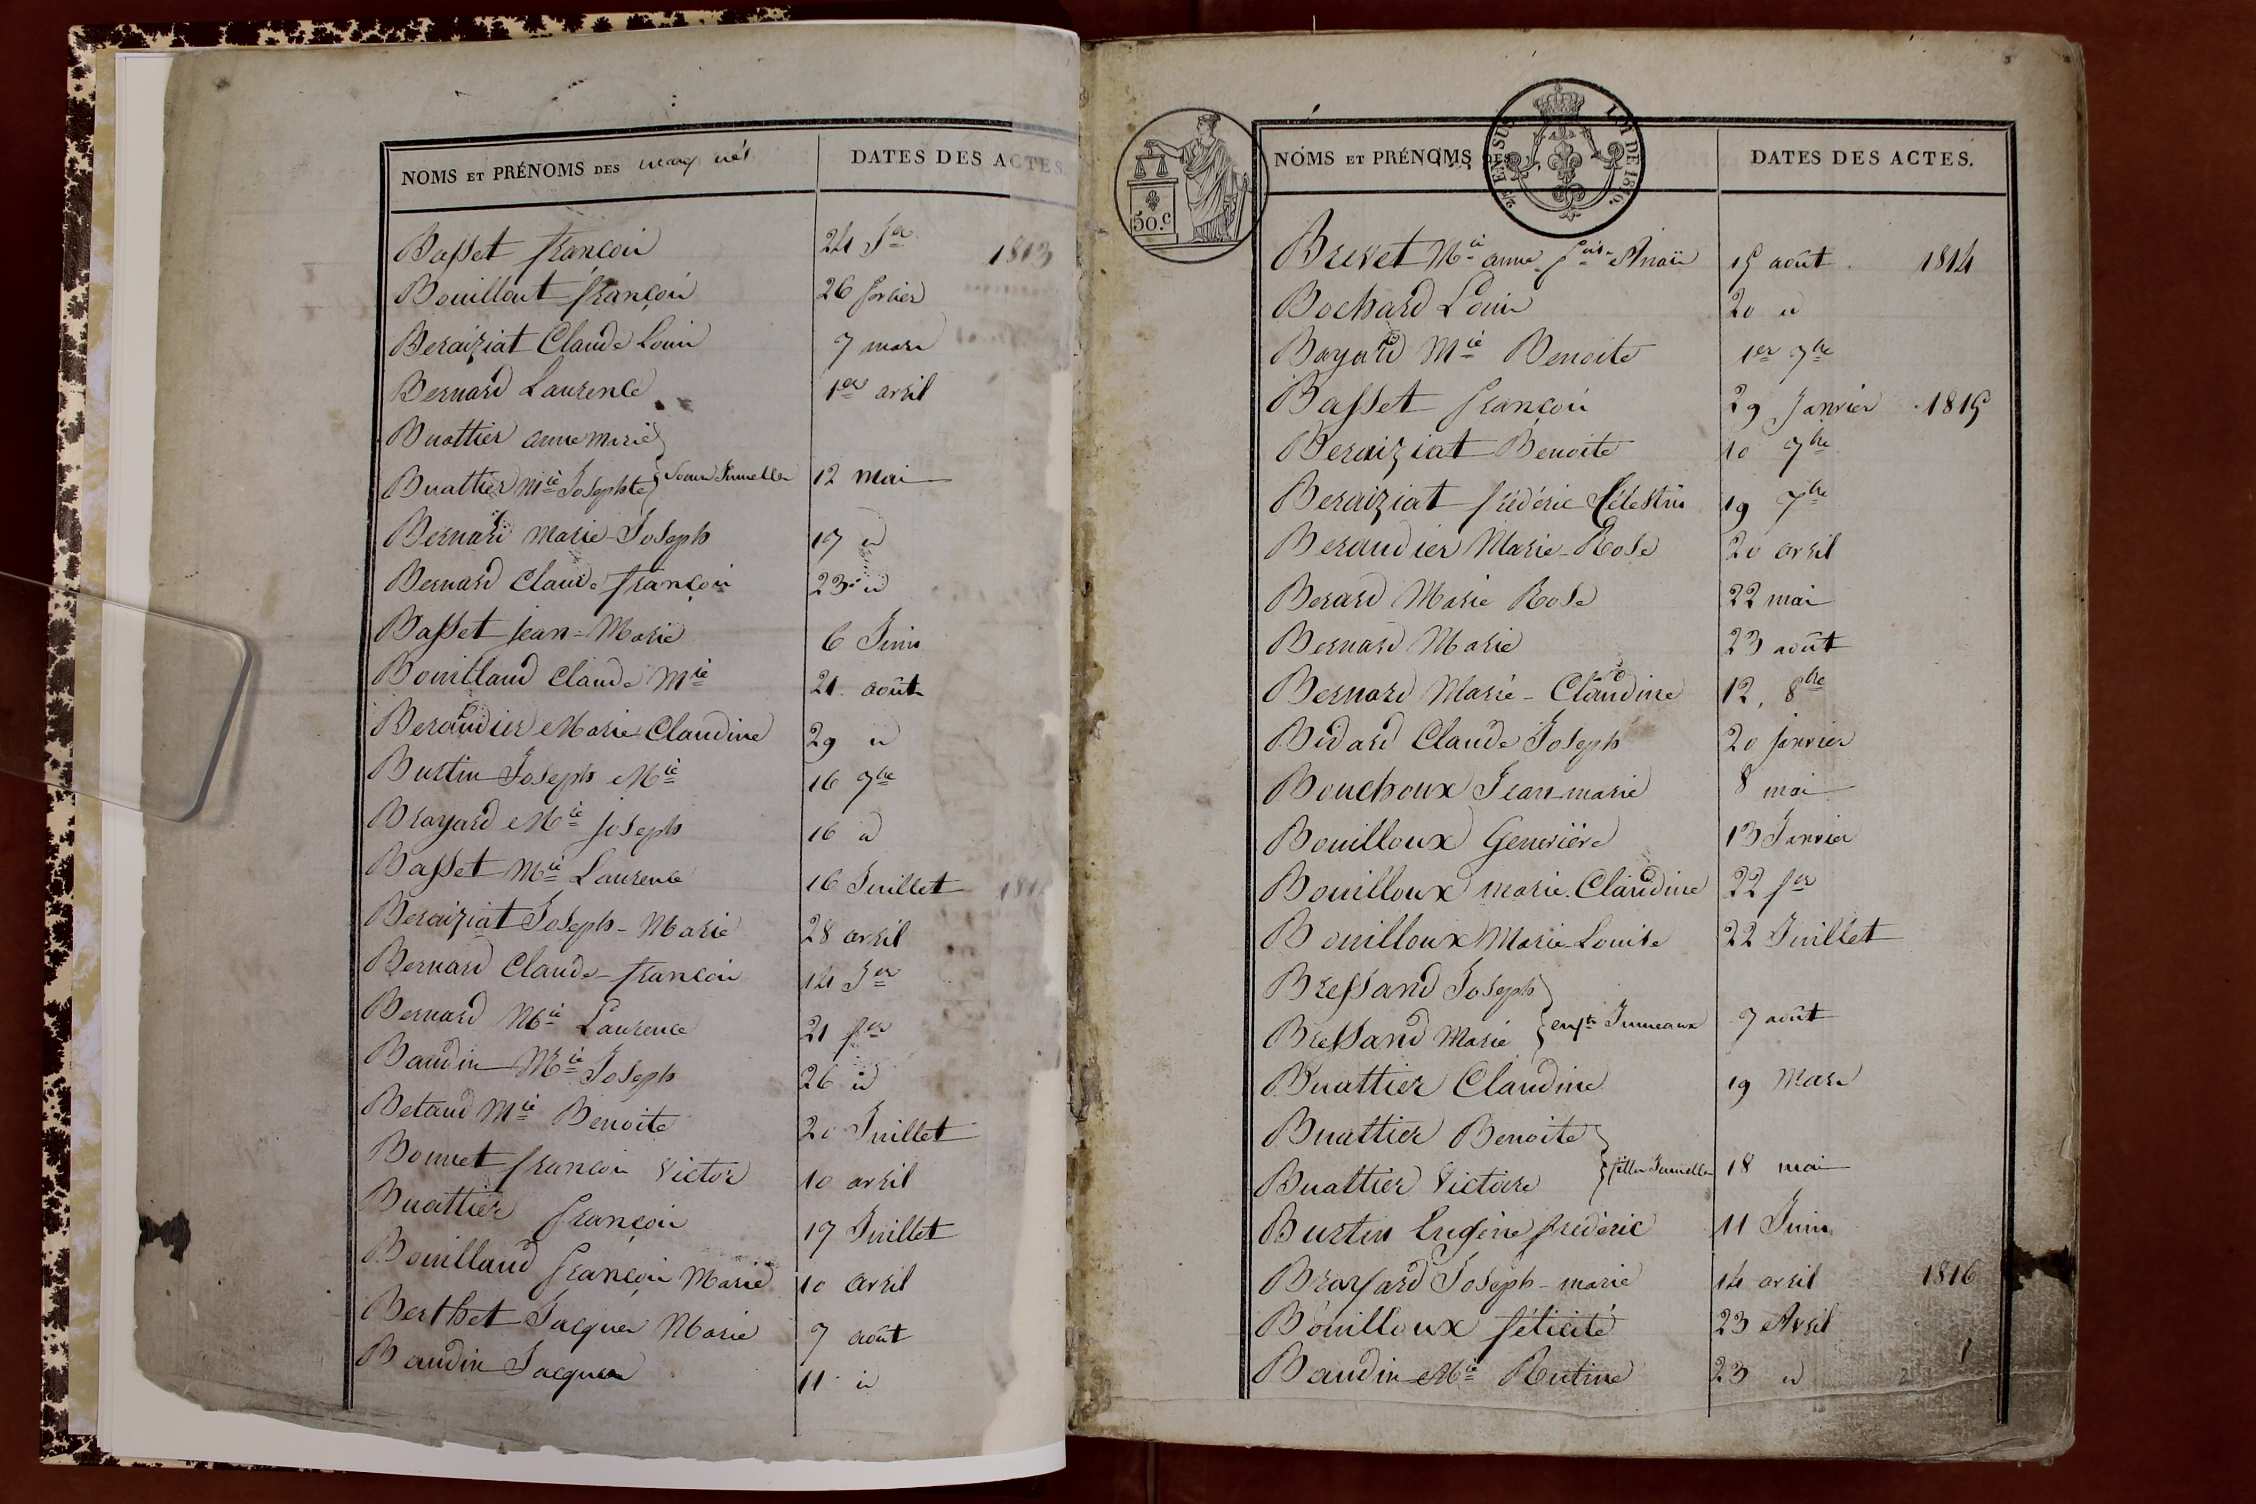 NOMS ET PRÉNOMS DES nouv nés DATES DES ACTES.
Basset françois 24 J.er 1813
Bouillout françois 26 fevrier
Beraiziat Claude Louis 7 mars
Bernard Laurence 1er avril
Buattier anne marie
Buattier Mie Josephte } soeurs Jumelles 12 mai
Bernard Marie-Joseph 17 id
Bernard Claude françois 23 id
Basset jean-Marie 6 Juin
Bouilland Claude Mie 21 août
Beraudier Marie Claudine 29 id
Burtin Joseph Mie 16 9bre
Brayard Mie joseph 16 id
Basset Mie Laurence 16 Juillet 1814
Beraiziat Joseph-Marie 28 avril
Bernard Claude-françois 14 J.er
Bernard Mie Laurence 21 f.er
Baudin Mie Joseph 26 id
Betaud Mie Benoite 20 Juillet
Bonnet françois Victor 10 avril
Buattier françois 17 Juillet
Bouilland françois Marie 10 avril
Berthet Jacques Marie 7 août
Baudin Jacques 11 id
50.C
LOI DE 1816.
NOMS ET PRÉNOMS DES DATES DES ACTES.
Brevet Mie anne 15 août 1814
Bochard Louis 20 id
Bayard Mie Benoite 1er 9bre
Basset françois 29 Janvier 1815
Beraiziat Benoite 10 9bre
Beraiziat frédéric Célestin 19 7bre
Beraudier Marie-Rose 20 avril
Berard Marie Rose 22 mai
Bernard Marie 23 août
Bernard Marie-Claudine 12. 8bre
Bidard Claude Joseph 20 janvier
Bouchoux Jean marie 8 mai
Bouilloux Geneviève 13 Janvier
Bouilloux marie Claudine 22 f.er
Bouilloux Marie Louise 22 Juillet
Bressand Joseph
Bressand Marie } enfts Jumeaux 7 août
Buattier Claudine 19 Mars
Buattier Benoite
Buattier Victoire } filles Jumelles 18 mai
Burtin Eugène frédéric 11 Juin
Brayard Joseph-marie 14 avril 1816
Bouilloux félicité 23 Avril
Baudin Mie Rutine 23 id